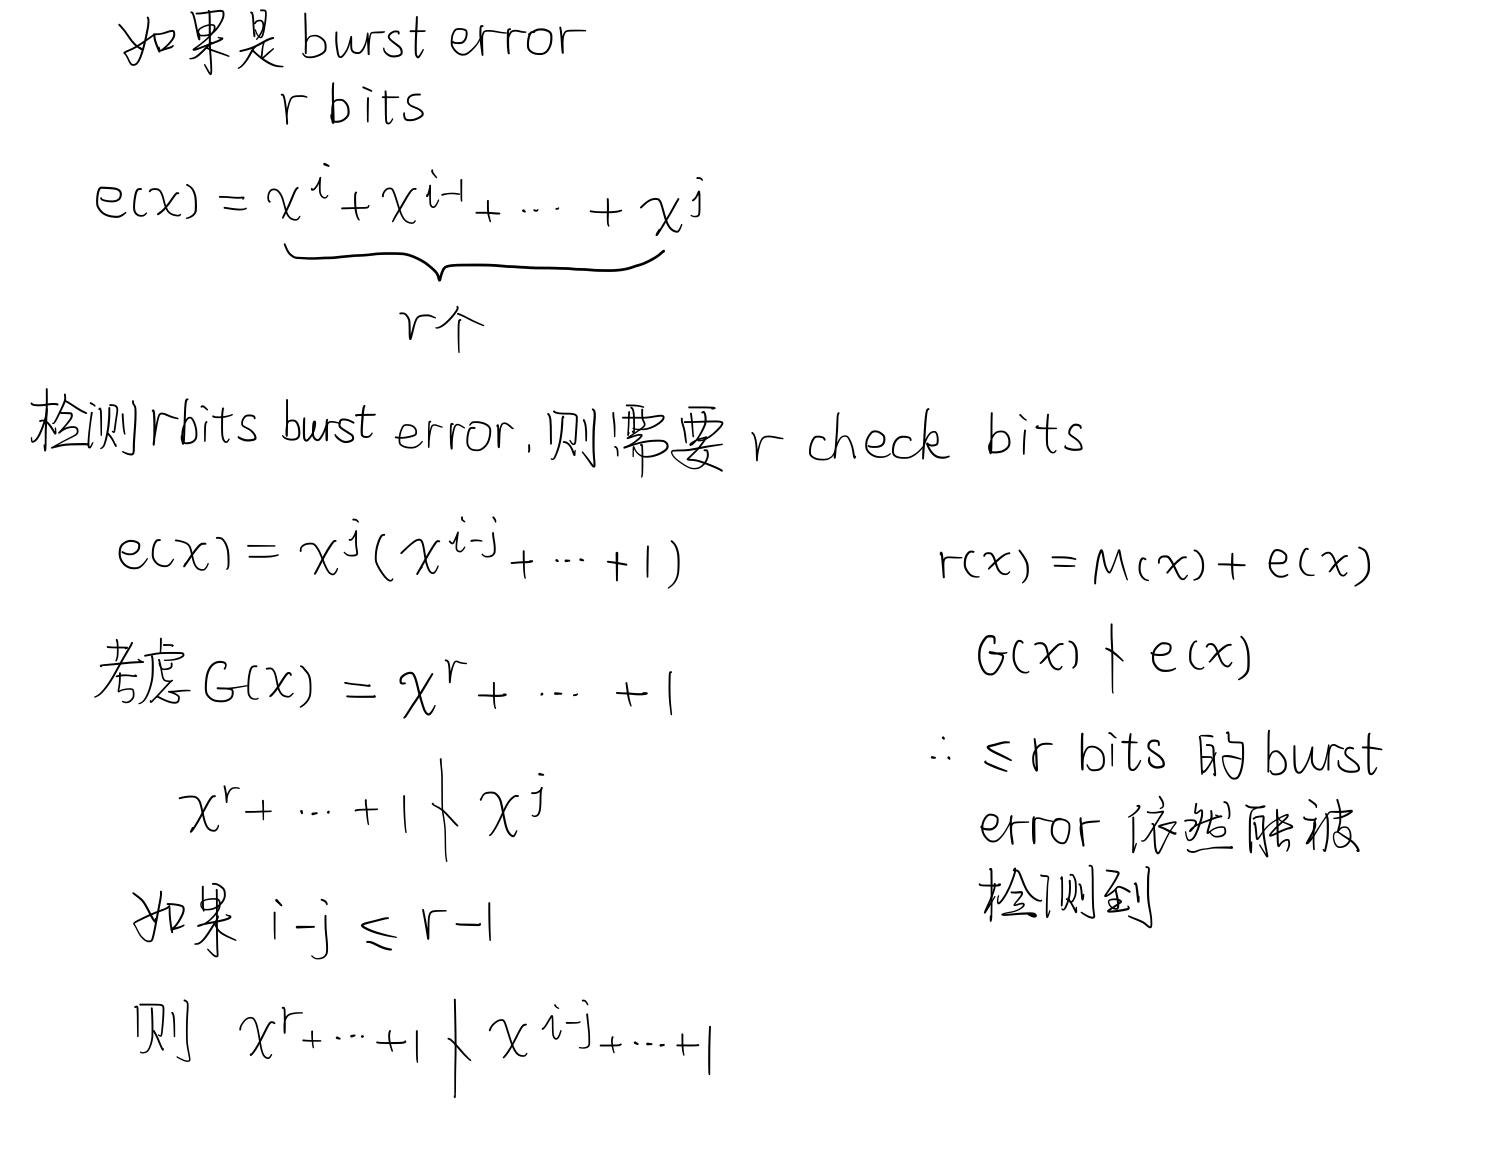 如果是 burst error
r bits
e(x) = x^i + x^{i-1} + ⋯ + x^j
r个
检测 r bits burst error, 则需要 r check bits
e(x) = x^j (x^{i-j} + ⋯ + 1)
考虑 G(x) = x^r + ⋯ + 1
x^r + ⋯ + 1 ∤ x^j
如果 i-j ≤ r-1
则 x^r + ⋯ + 1 ∤ x^{i-j} + ⋯ + 1
r(x) = M(x) + e(x)
G(x) ∤ e(x)
∴ ≤ r bits 的 burst
error 依然能被
检测到